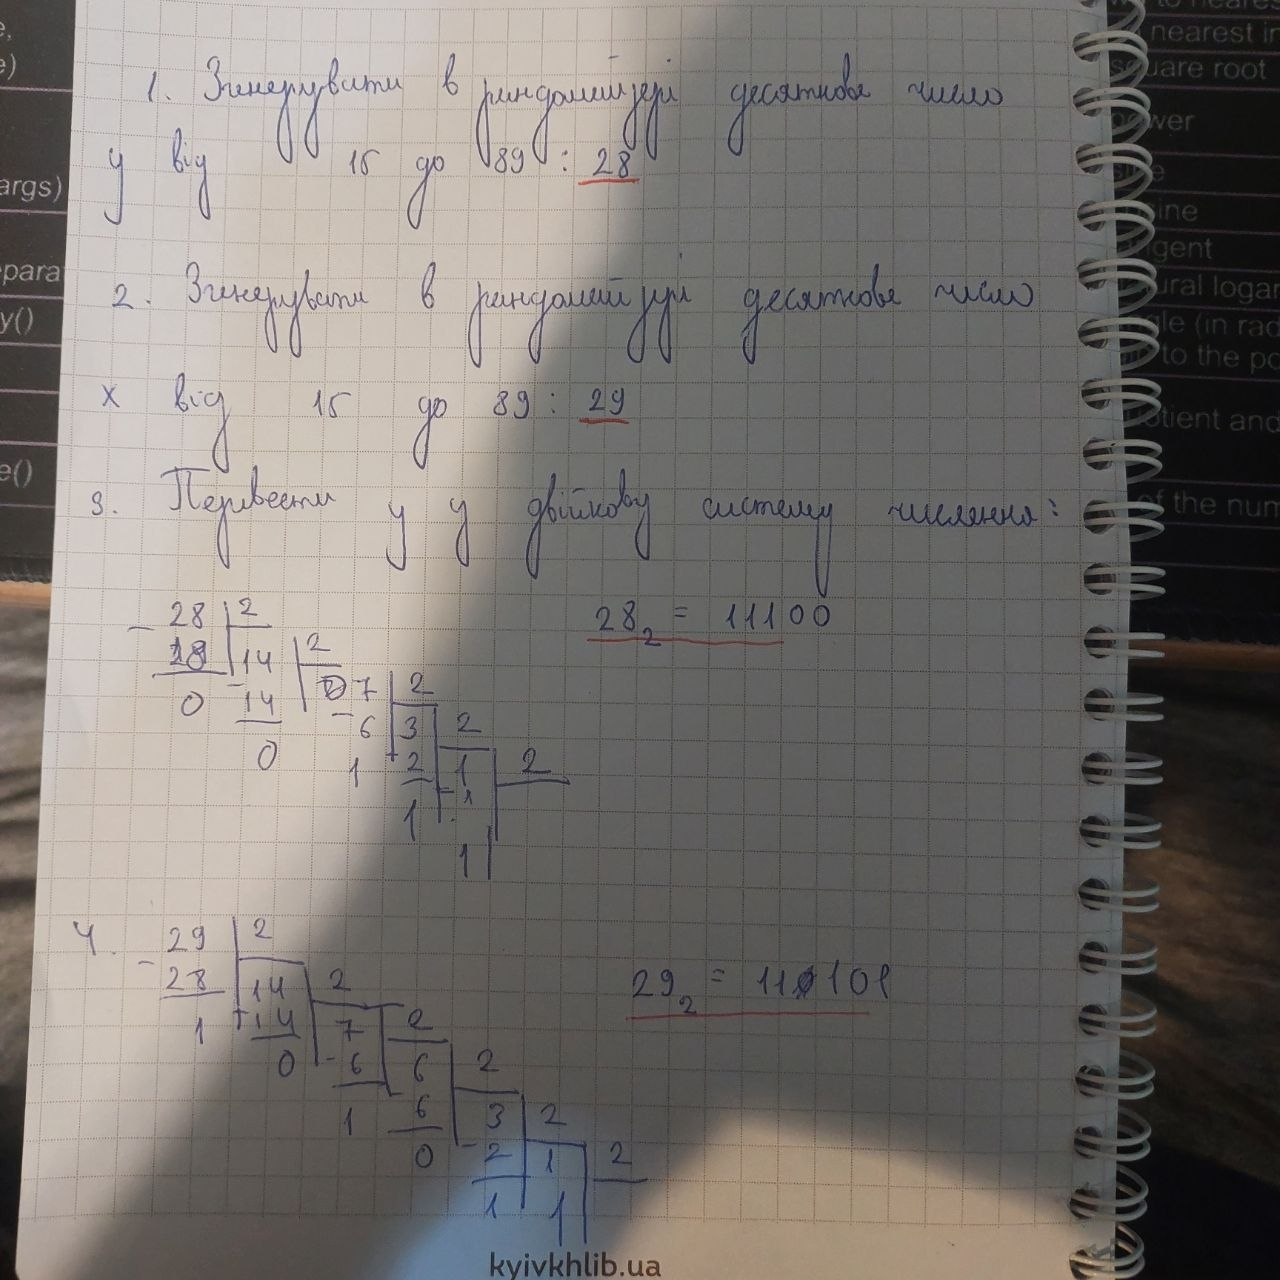 1. Згенерувати в рандомайзері десяткове число
у від 15 до 89 : 28
2. Згенерувати в рандомайзері десяткове число
х від 15 до 89 : 29
3. Перевести у у двійкову систему числення:
28 2
28 14 2
0 14 7 2
0 6 3 2
1 2 1 2
1 1
1
28₂ = 11100
4. 29 2
28 14 2
1 14 7 2
0 6 6 2
1 6 3 2
0 2 1 2
1 1
29₂ = 11101
nearest in
square root
power
sine
tangent
args)
epara
ural logar
y()
gle (in rad
to the po
otient and
e()
of the num
kyivkhlib.ua